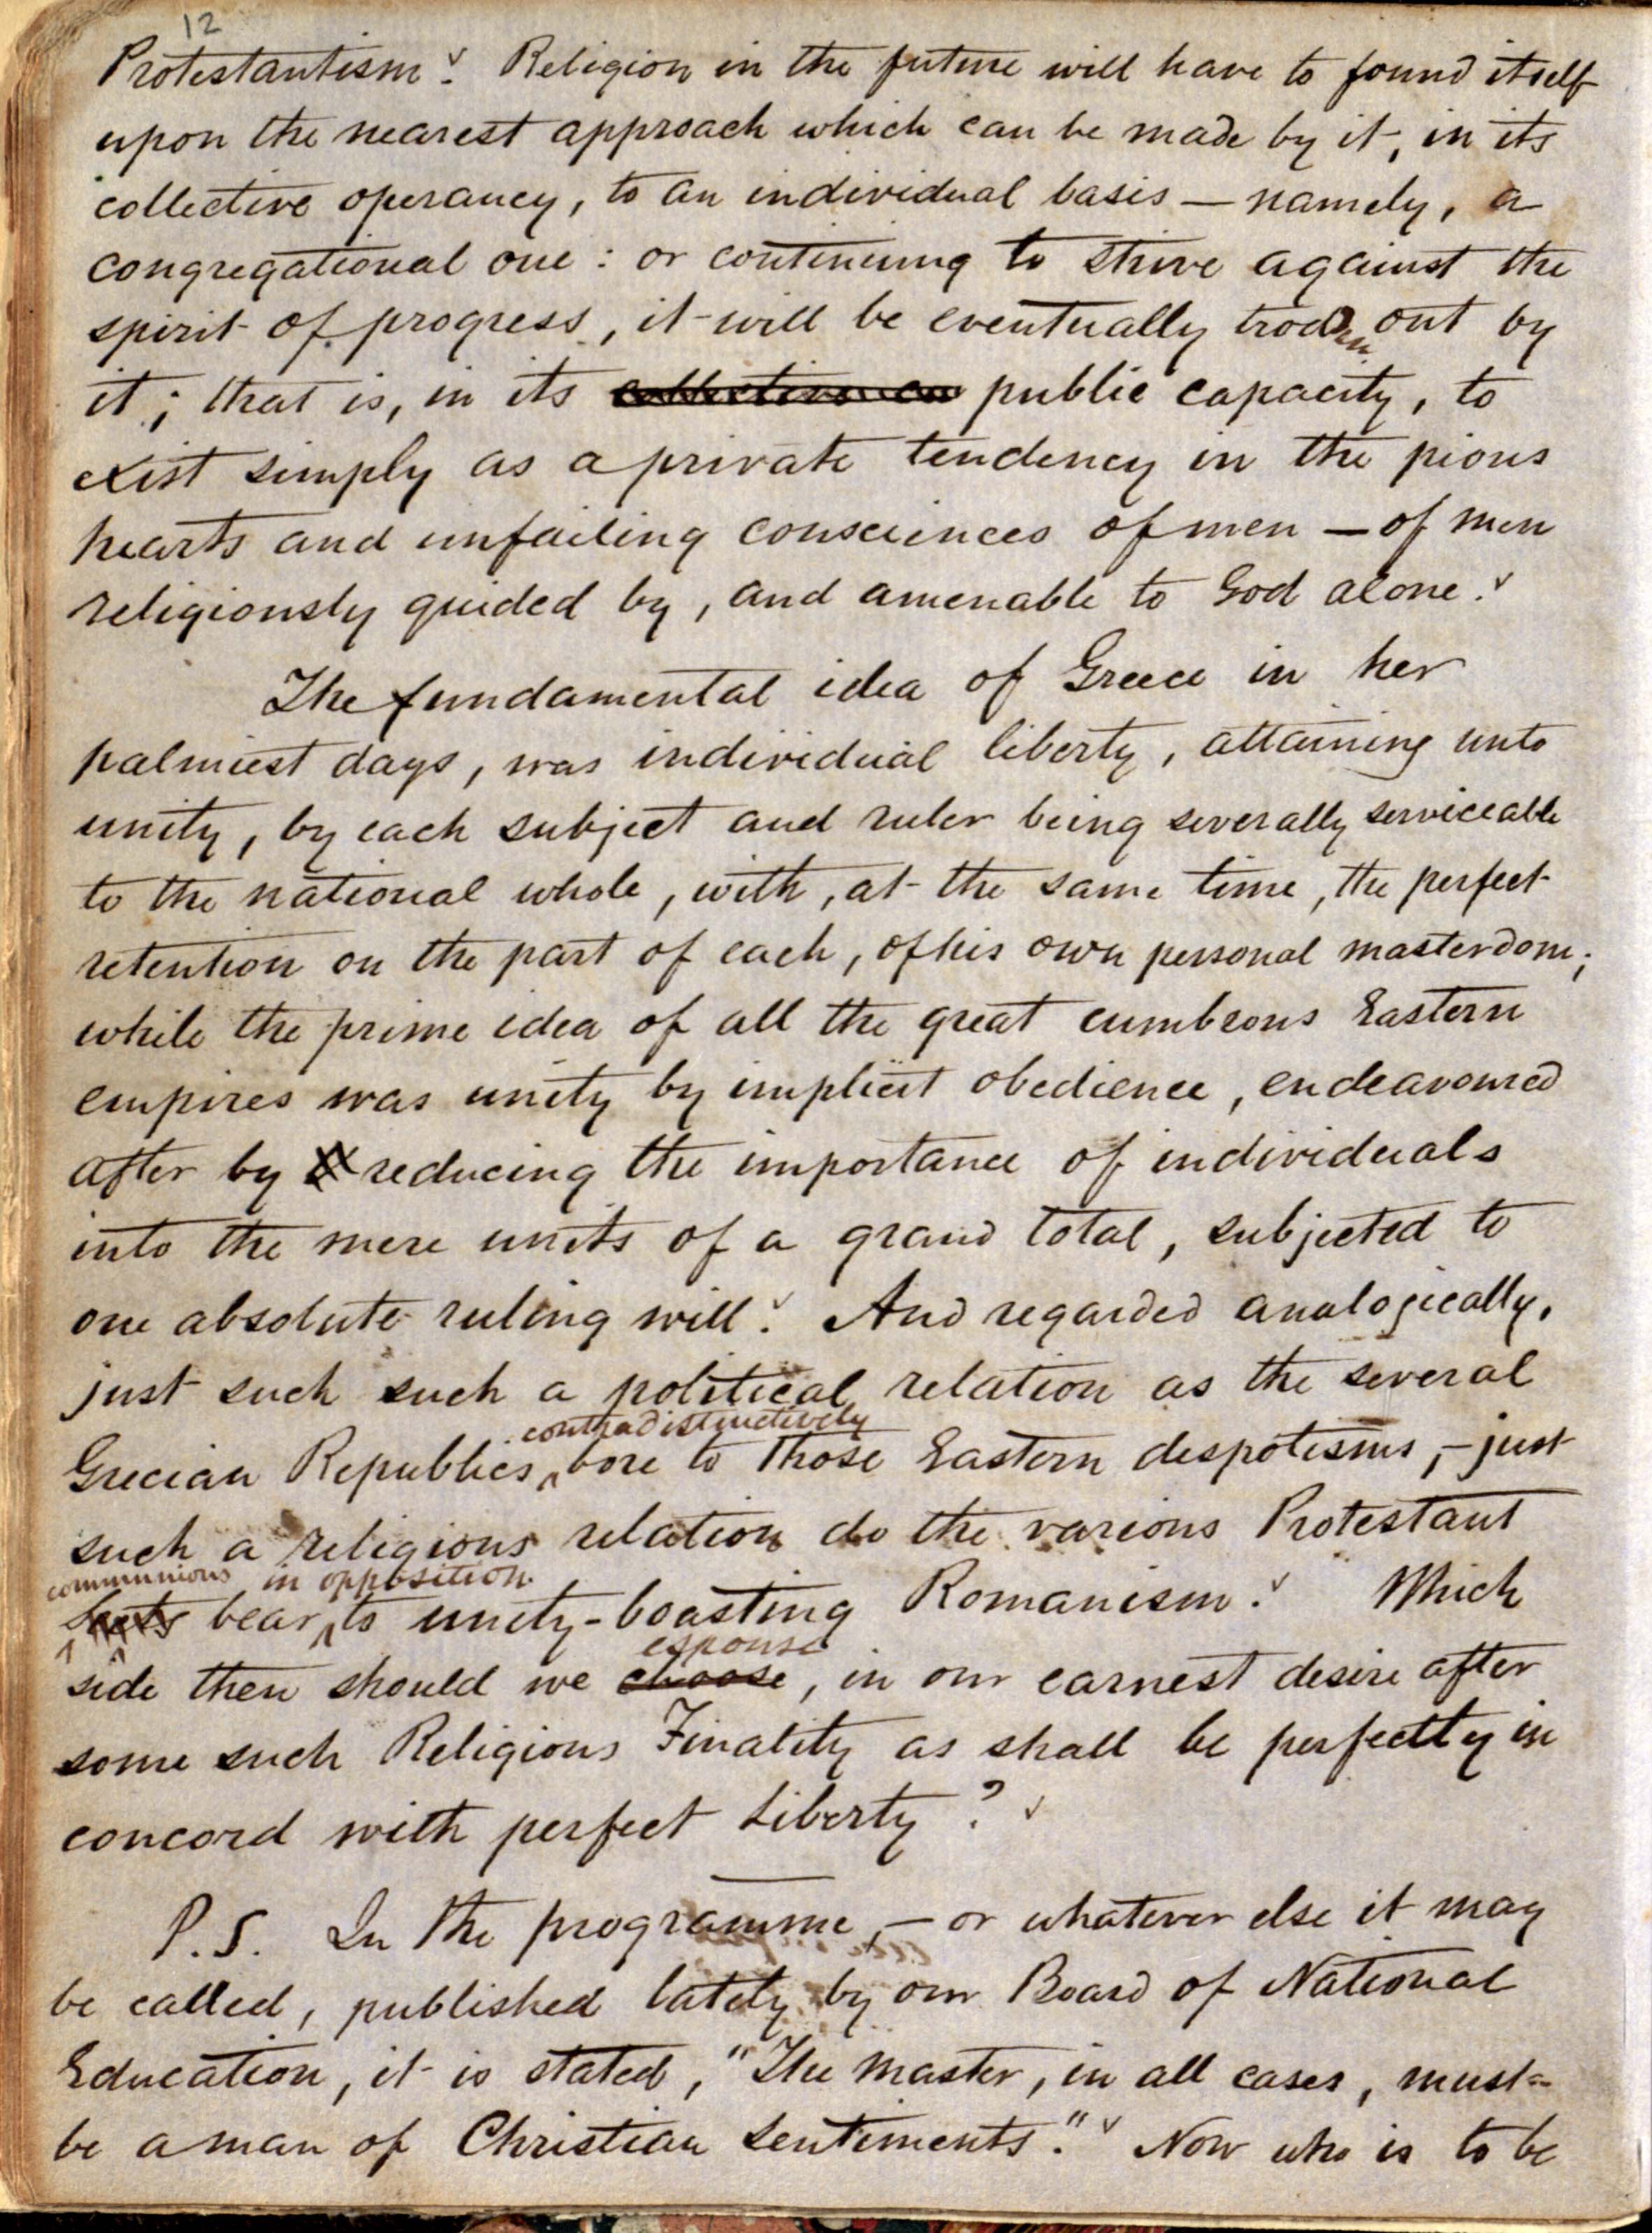 12
Protestantism. Religion in the future will have to found itself
upon the nearest approach which can be made by it, in its
collective operancy, to an individual basis — namely, a
congregational one : or continuing to strive against the
spirit of progress, it will be eventually trodden out by
it ; that is, in its collective ca public capacity, to
exist simply as a private tendency in the pious
hearts and unfailing consciences of men — of men
religiously guided by, and amenable to God alone.
The fundamental idea of Greece in her
palmiest days, was individual liberty, attaining unto
unity, by each subject and ruler being severally serviceable
to the national whole, with, at the same time, the perfect
retention on the part of each, of his own personal masterdom;
while the prime idea of all the great cumbrous Eastern
empires was unity by implicit obedience, endeavoured
after by reducing the importance of individuals
into the mere units of a grand total, subjected to
one absolute ruling will. And regarded analogically,
just such such a political relation as the several
contradistinctively
Grecian Republics bore to those Eastern despotisms, – just
such a religious relation do the various Protestant
communions in opposition
Sects bear to unity-boasting Romanism. Which
espouse
side then should we choose, in our earnest desire after
some such Religious Finality as shall be perfectly in
concord with perfect Liberty ?
P.S. In the programme, – or whatever else it may
be called, published lately by our Board of National
Education, it is stated, "The master, in all cases, must
be a man of Christian sentiments." Now who is to be